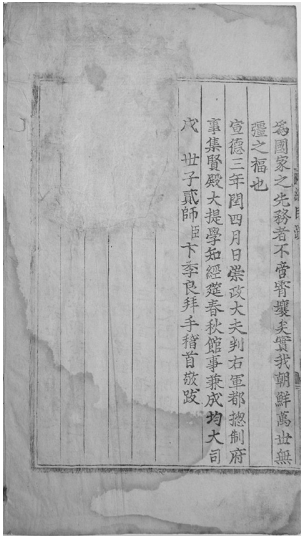 為國家之先務者不啻霄壤矣實我朝鮮萬世無
疆之福也
宣德三年閏四月日崇政大夫判右軍都摠制府
事集賢殿大提學知經筵春秋館事兼成均大司
成 世子貳師臣卞季良拜手稽首敬跋